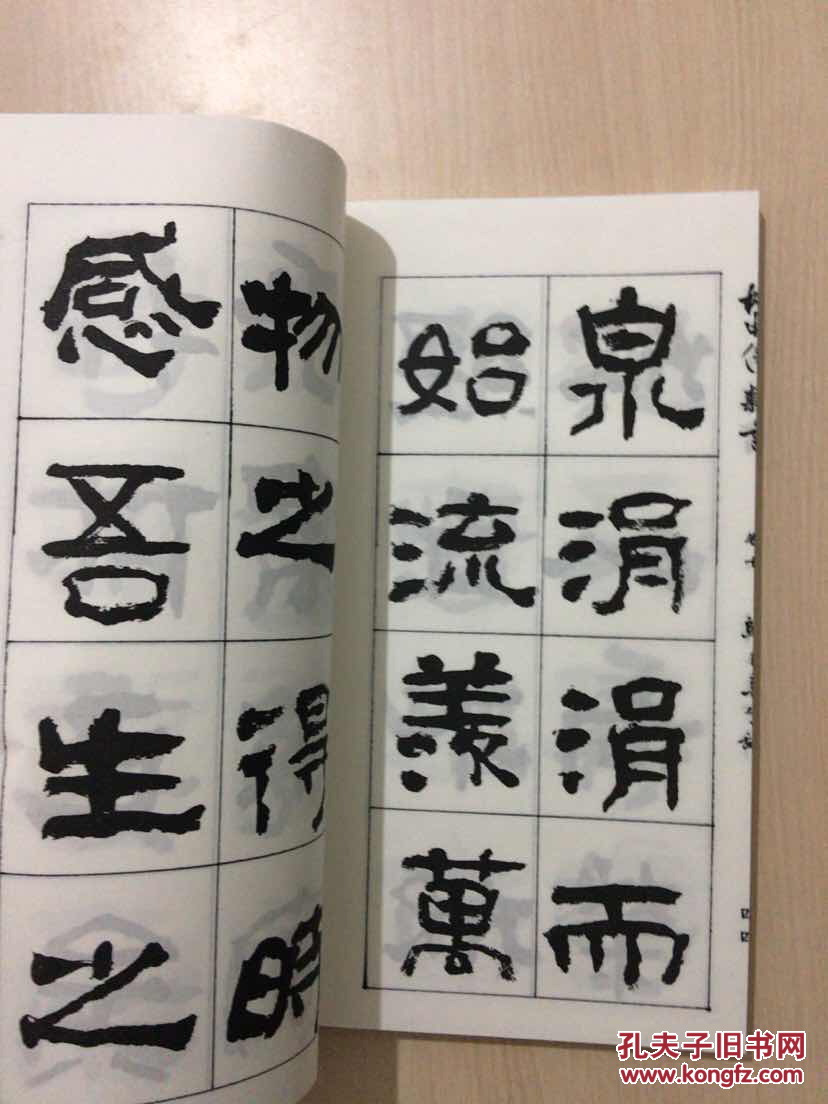 泉涓涓而
始流羨萬
物之得時
感吾生之
四四
孔夫子旧书网
www.kongfz.com